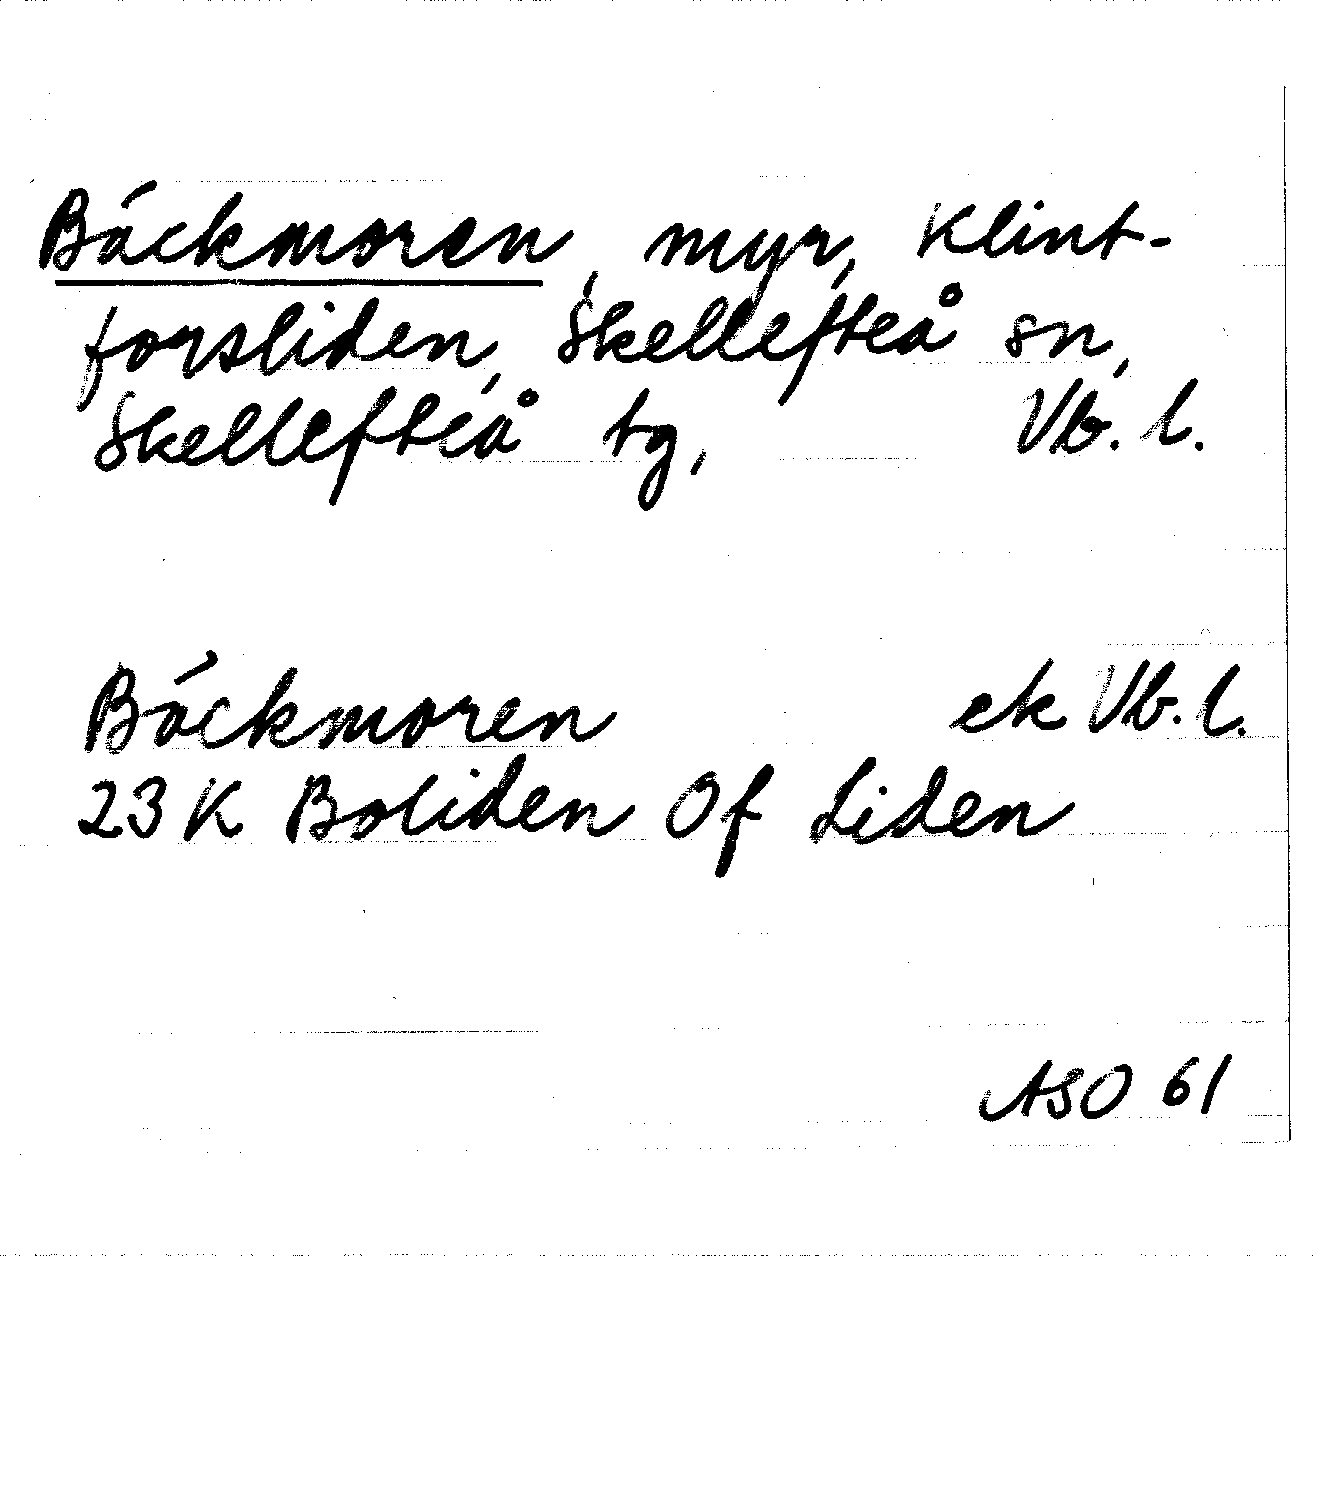 Bäckmoren, myr, Klint-
forsliden, Skellefteå sn,
Skellefteå tg, Vb. l.
Bäckmoren ek Vb. l.
23 K Boliden Of Liden
ASO 61